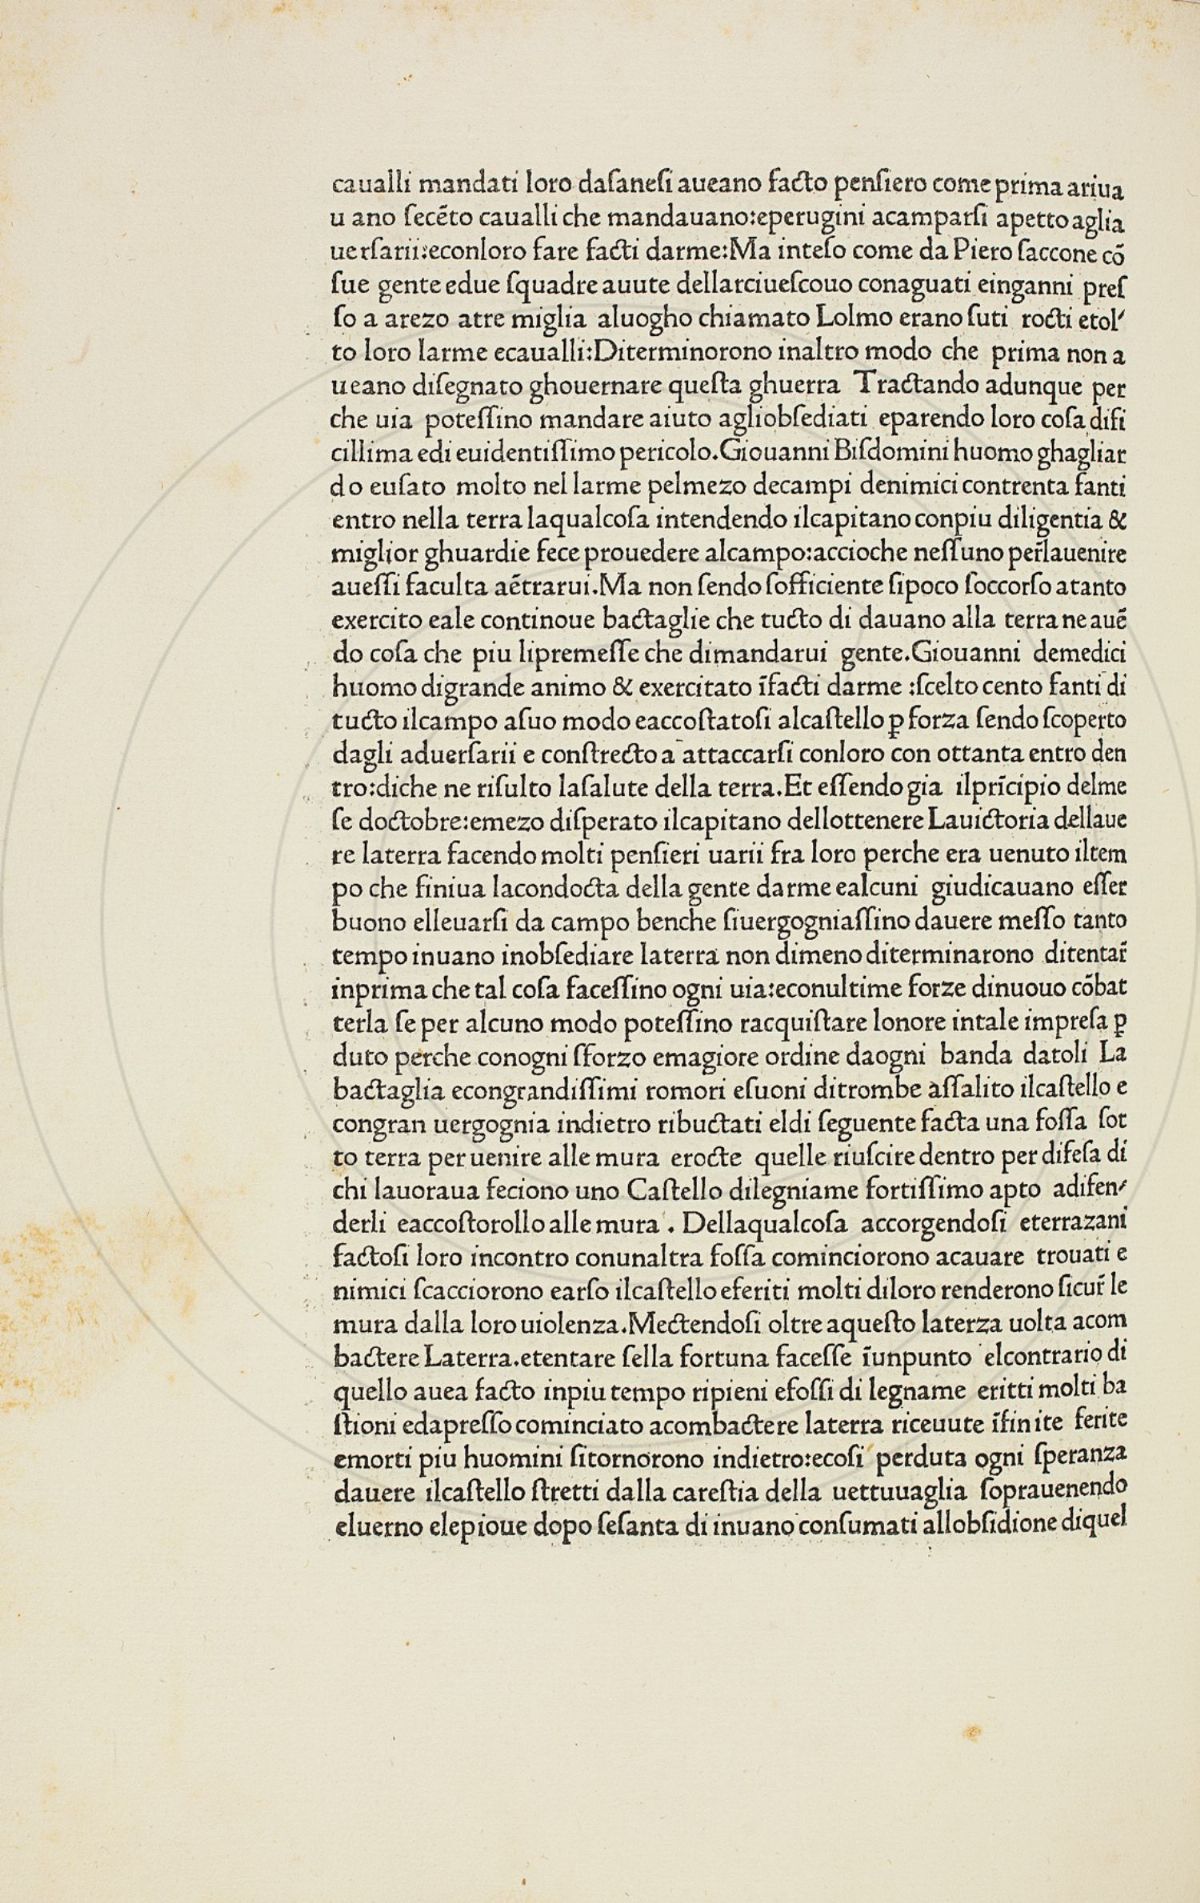 caualli mandati loro daſaneſi aueano facto penſiero come prima ariua
u ano ſecēto caualli che mandauano:eperugini acamparſi apetto aglia
uerſarii:econloro fare facti darme:Ma inteſo come da Piero ſaccone cō
ſue gente edue ſquadre auute dellarciueſcouo conaguati einganni preſ
ſo a arezo atre miglia aluogho chiamato Lolmo erano ſuti rocti etol⸗
to loro larme ecaualli:Diterminorono inaltro modo che prima non a
ueano diſegnato ghouernare queſta ghuerra Tractando adunque per
che uia poteſſino mandare aiuto agliobſediati eparendo loro coſa difi
cillima edi euidentiſſimo pericolo.Giouanni Biſdomini huomo ghagliar
do euſato molto nel larme pelmezo decampi denimici contrenta fanti
entro nella terra laqualcoſa intendendo ilcapitano conpiu diligentia &
miglior ghuardie fece prouedere alcampo:accioche neſſuno per̃lauenire
aueſſi faculta aētrarui.Ma non ſendo ſofficiente ſipoco ſoccorſo atanto
exercito eale continoue bactaglie che tucto di dauano alla terra ne auē
do coſa che piu lipremeſſe che dimandarui gente.Giouanni demedici
huomo digrande animo & exercitato īfacti darme :ſcelto cento fanti di
tucto ilcampo aſuo modo eaccoſtatoſi alcaſtello ꝑ forza ſendo ſcoperto
dagli aduerſarii e conſtrecto a attaccarſi conloro con ottanta entro den
tro:diche ne riſulto laſalute della terra.Et eſſendo gia ilprīcipio delme
ſe doctobre:emezo diſperato ilcapitano dellottenere Lauictoria dellaue
re laterra facendo molti penſieri uarii fra loro perche era uenuto iltem
po che finiua lacondocta della gente darme ealcuni giudicauano eſſer
buono elleuarſi da campo benche ſiuergogniaſſino dauere meſſo tanto
tempo inuano inobſediare laterra non dimeno diterminarono ditentar̃
inprima che tal coſa faceſſino ogni uia:econultime forze dinuouo cōbat
terla ſe per alcuno modo poteſſino racquiſtare lonore intale impreſa ꝑ
duto perche conogni ſforzo emagiore ordine daogni banda datoli La
bactaglia econgrandiſſimi romori eſuoni ditrombe aſſalito ilcaſtello e
congran uergognia indietro ribuctati eldi ſeguente facta una foſſa ſot
to terra per uenire alle mura erocte quelle riuſcire dentro per difeſa di
chi lauoraua feciono uno Caſtello dilegniame fortiſſimo apto adifen⸗
derli eaccoſtorollo alle mura . Dellaqualcoſa accorgendoſi eterrazani
factoſi loro incontro conunaltra foſſa cominciorono acauare trouati e
nimici ſcacciorono earſo ilcaſtello eferiti molti diloro renderono ſicur̃ le
mura dalla loro uiolenza.Mectendoſi oltre aqueſto laterza uolta acom
bactere Laterra.etentare ſella fortuna faceſſe īunpunto elcontrario di
quello auea facto inpiu tempo ripieni efoſſi di legname eritti molti ba
ſtioni edapreſſo cominciato acombactere laterra riceuute īfinite ferite
emorti piu huomini ſitornorono indietro:ecoſi perduta ogni ſperanza
dauere ilcaſtello ſtretti dalla careſtia della uettuuaglia ſoprauenendo
eluerno elepioue dopo ſeſanta di inuano conſumati allobſidione diquel